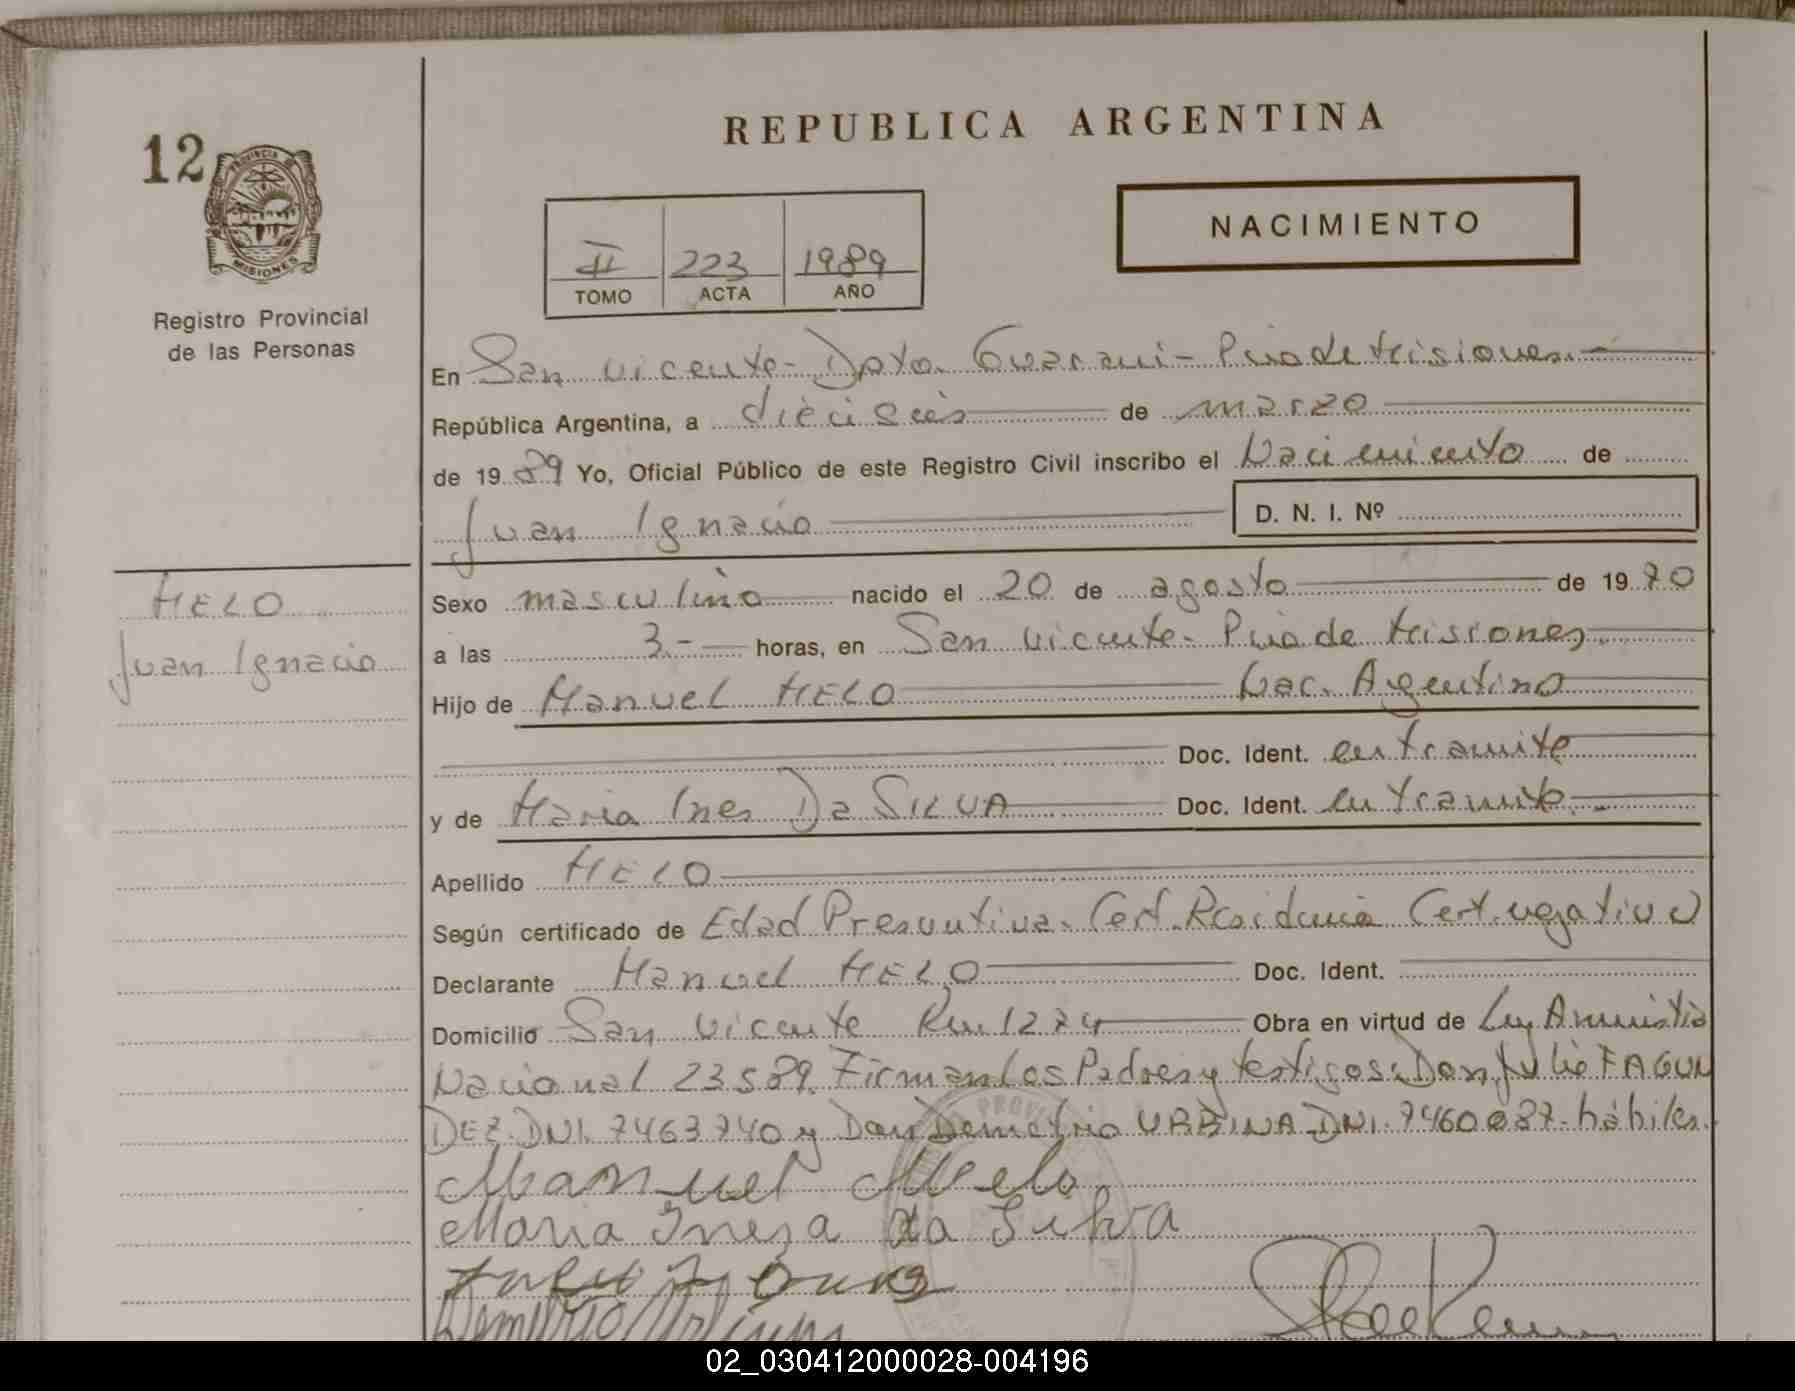 REPUBLICA ARGENTINA
12
PROVINCIA DE
MISIONES
Registro Provincial
de las Personas
NACIMIENTO
II 223 1989
TOMO ACTA AÑO
En San Vicente - Dpto. Guarani - Pcia de Misiones.-
República Argentina, a dieciseis de marzo
de 1989 Yo, Oficial Público de este Registro Civil inscribo el Nacimiento de
Juan Ignacio D. N. I. Nº
MELO
Juan Ignacio
Sexo masculino nacido el 20 de agosto de 1970
a las 3.- horas, en San Vicente - Pcia de Misiones
Hijo de Manuel MELO Nac. Argentino
Doc. Ident. en tramite
y de Maria Ines Da SILVA Doc. Ident. en tramite.-
Apellido MELO
Según certificado de Edad Presuntiva. Cert. Residencia Cert. negativo
Declarante Manuel MELO Doc. Ident.
Domicilio San Vicente Km 1274 Obra en virtud de Ley Amnistia
Nacional 23589. Firman los Padres y testigos: Don Julio FAGUN
DEZ. DNI. 7463740 y Don Demetrio URBINA DNI. 7460087- hábiles.
Manuel Melo
Maria Ineza da Silva
02_030412000028-004196